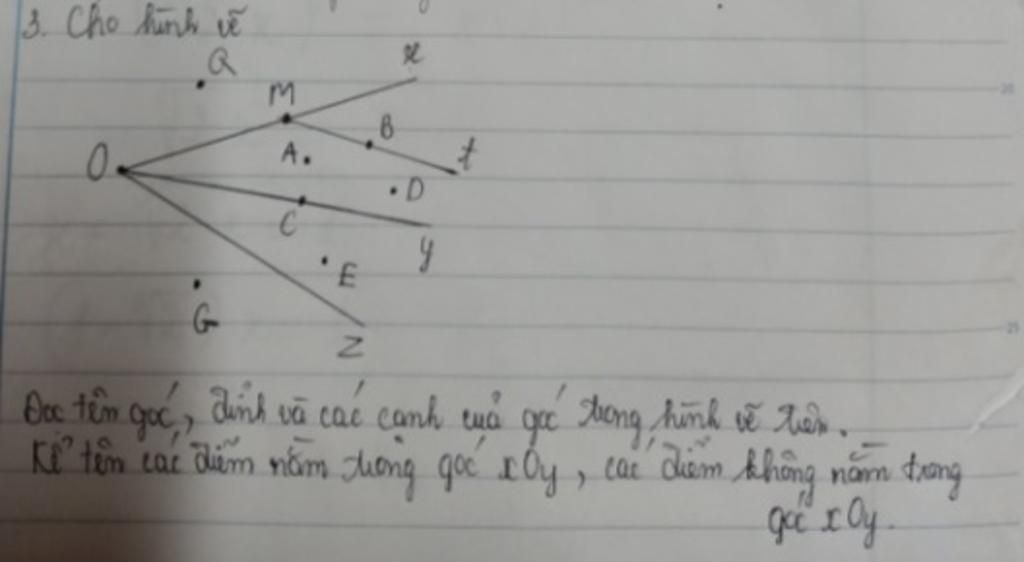 3. Cho hình vẽ
Q
x
M
B
t
O
A
D
C
y
E
G
z
Đọc tên góc, đỉnh và các cạnh của góc trong hình vẽ trên.
Kể tên các điểm nằm trong góc xOy, các điểm không nằm trong
góc xOy.
20
25